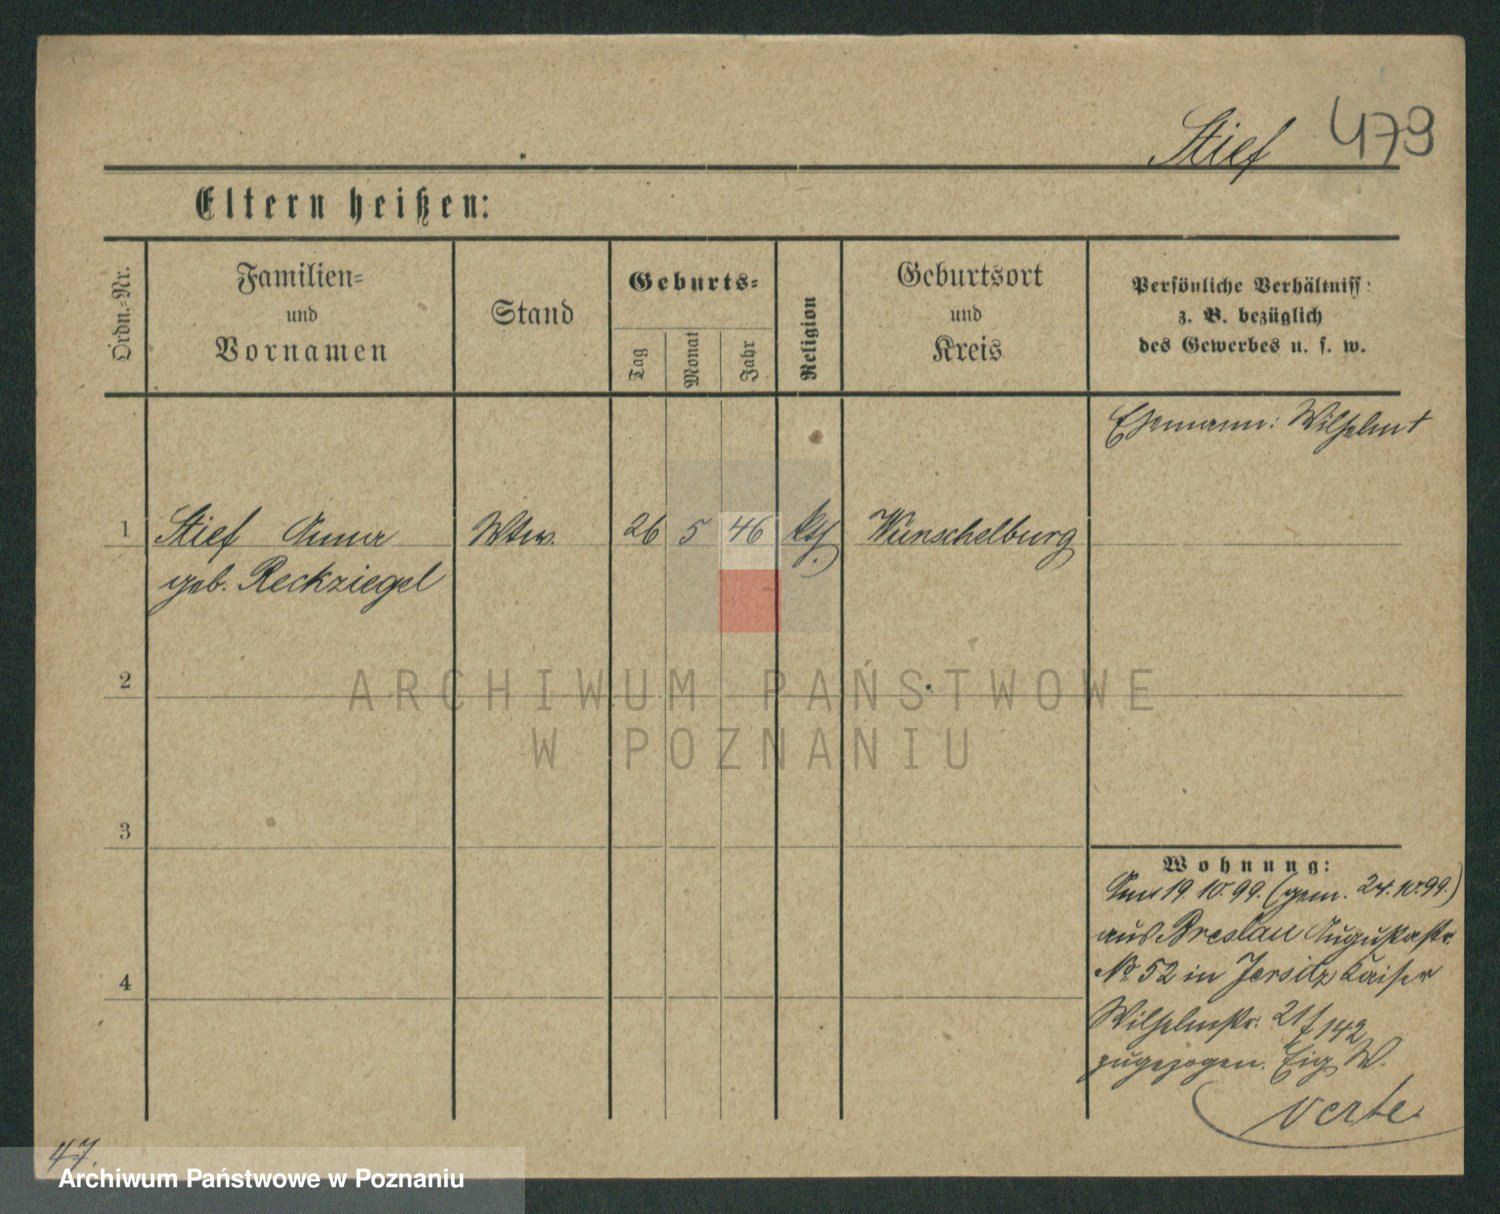 Stief 479
Eltern heißen:
Ordn.-Nr.
Familien-
und
Vornamen
Stand
Geburts-
Tag
Monat
Jahr
Religion
Geburtsort
und
Kreis
Persönliche Verhältniss
z. B. bezüglich
des Gewerbes u. s. w.
Ehemann: Wilhelm †
1 Stief Anna Wtw. 26 5 46 kth. Wünschelburg
geb. Reckziegel
2
ARCHIWUM PAŃSTWOWE
W POZNANIU
3
Wohnung:
Am 19.10.99. (gem. 24.10.99.)
aus Breslau Augustastr.
No 52 in Jersitz Kaiser
Wilhelmstr. 21/142
zugezogen. Eig. W.
verte
4
47.
Archiwum Państwowe w Poznaniu